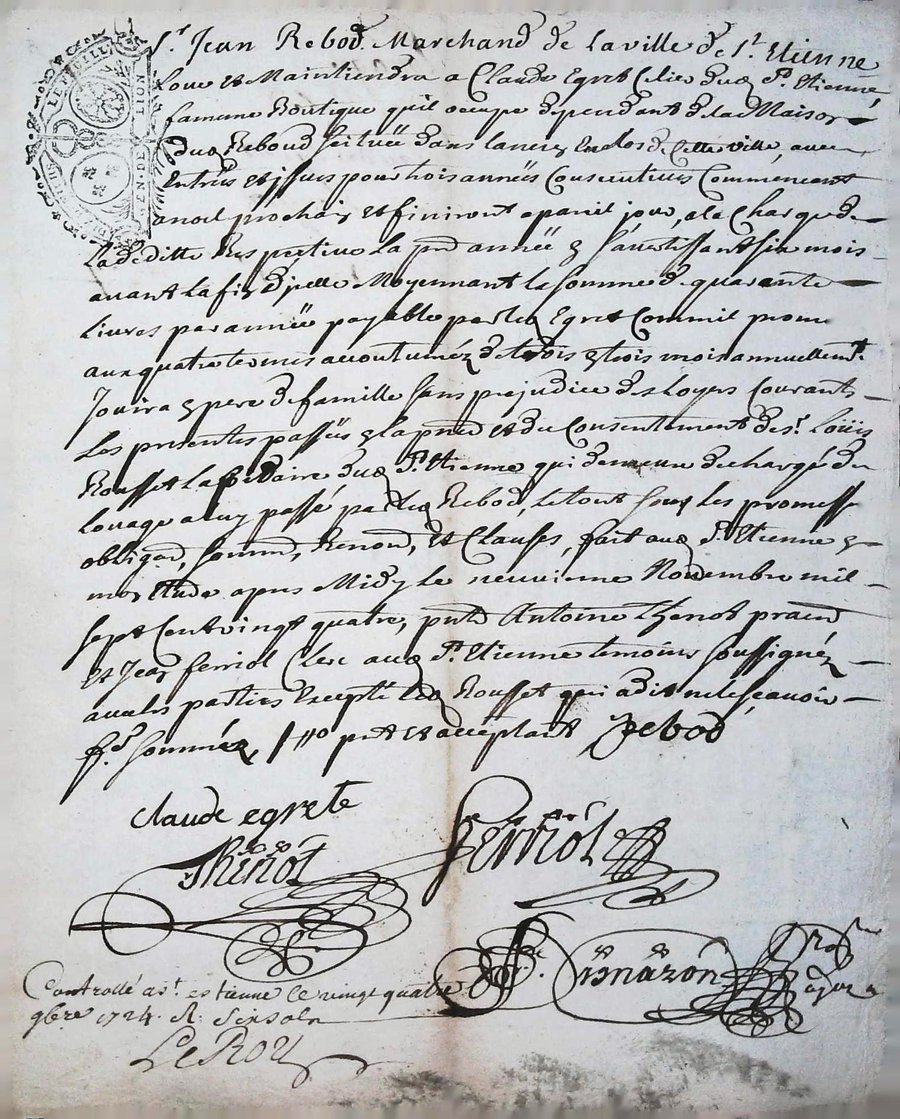 S.r Jean Rebod Marchand de Laville de S.t Etienne
Loue et Maintiendra a Claude Egret du S.t Etienne
Boutique quil occupe dependant de la Maison
Rebod scituëe dans lancien Enclos de Cette ville, avec
Entrées et issues pour trois années Consecutives Commencant
a noel prochain et finiront a pareil jour, a la Charge de
La deditte Respective La pnd année en sauertissant six mois
auant La fin dycelle Moyennant la somme de quarante
Liures par année payable par led Egret Commil prome
aux quatre termes accoutumez de trois en trois mois annuellemt
Jouira en pere de famille sans prejudice des Loyers Courants
Les presentes passées en la pnce et du Consentement de s.r Loüis
Rousset Lapidaire dud S.t Etienne qui demeure dechargé du
Louage a luy passé par led Rebod, Le tout sous les promess
obligaõns, soumns, Renonõns, et Clauses, fait aud S.t Etienne en
mon Etude apres Midy le neuvieme Novembre mil
sept Cent vingt quatre, pnts Antoine Thenot
et Jean ferriol Clerc aud S.t Etienne temoins soussignéz
auec les parties Excepté led Rousset qui a dit ne le sçauoir
sommez, et acceptant Rebod
claude egrete
Thenot ferriol
Controllé a s.t estienne le vingt quatre
9bre 1724. R.
Le Roy